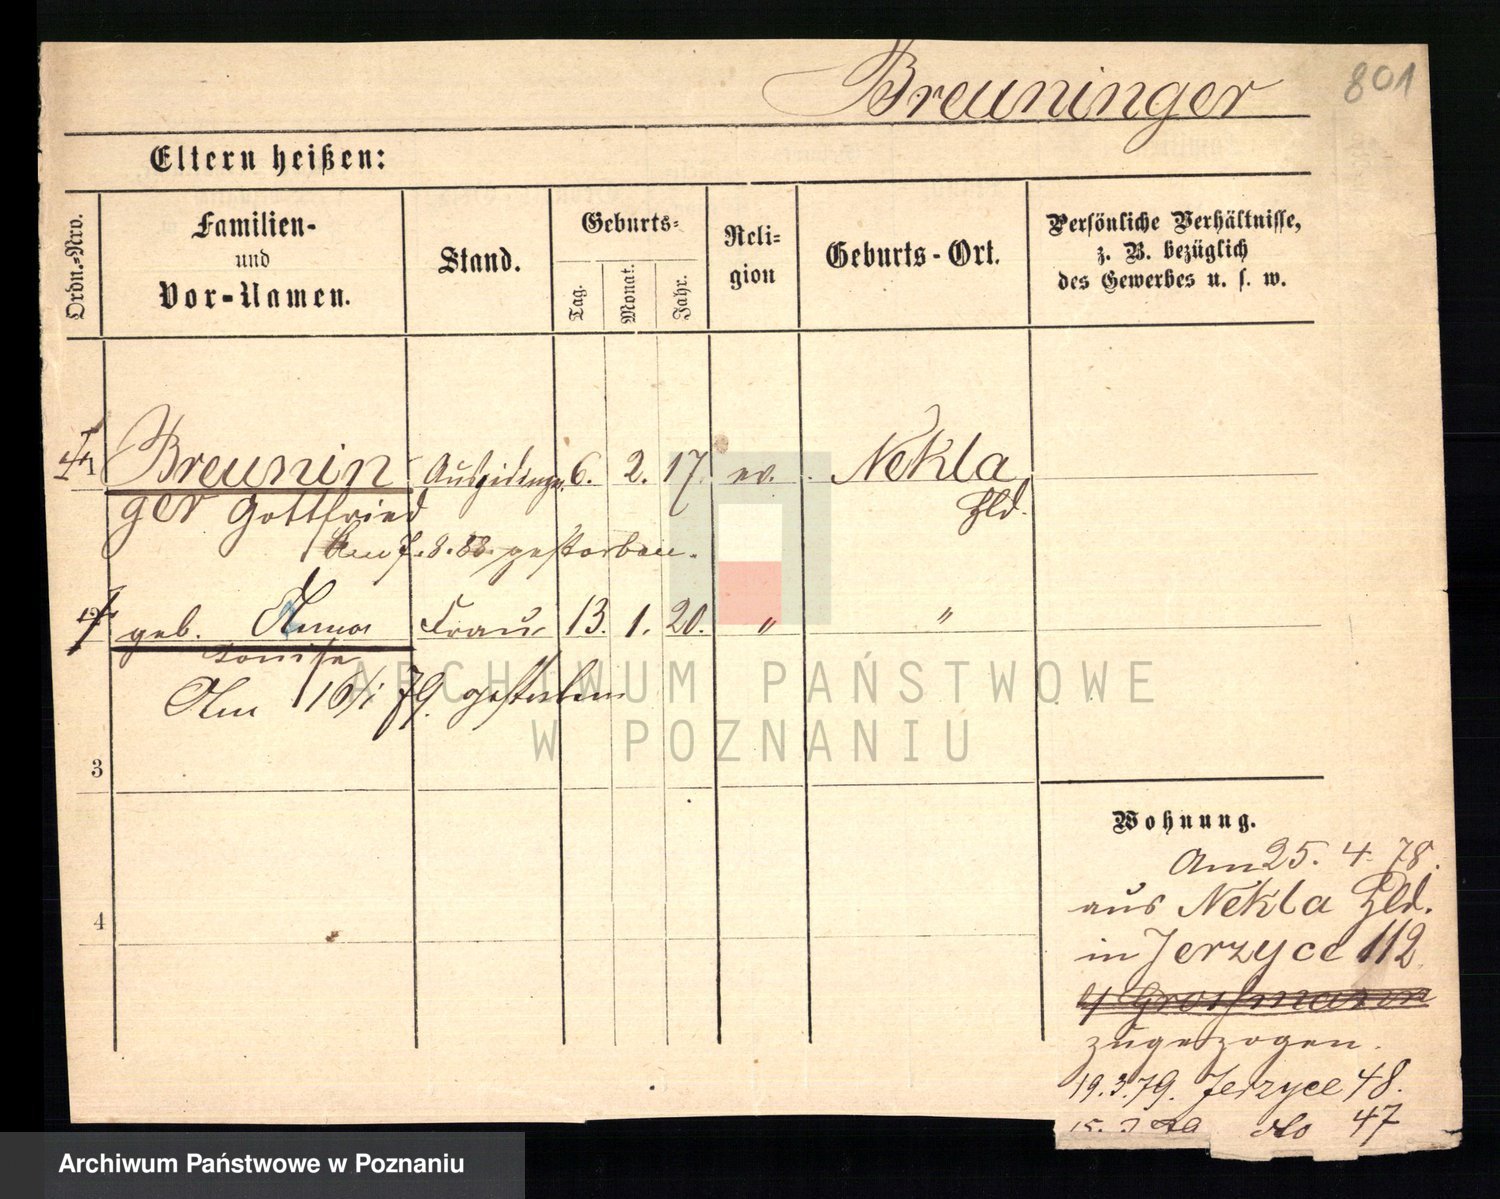 Breuninger
801
Eltern heißen:
Ordn.-Nro.
Familien-
und
Vor-Namen.
Stand.
Geburts-
Tag.
Monat.
Jahr.
Reli-
gion
Geburts-Ort.
Persönliche Verhältnisse,
z. B. bezüglich
des Gewerbes u. s. w.
1 Breunin 6. 2. 17. ev. Nekla
ger Gottfried Hld.
Am 7. 8. 88. gestorben.
2 geb. Frau 13. 1. 20. " "
Louise
Am 16/1 79. gestorben
3
4
Wohnung.
Am 25. 4. 78.
aus Nekla Hld.
in Jerzyce 112
zugezogen.
19.3.79. Jerzyce 48.
15. do 47
ARCHIWUM PAŃSTWOWE
W POZNANIU
Archiwum Państwowe w Poznaniu